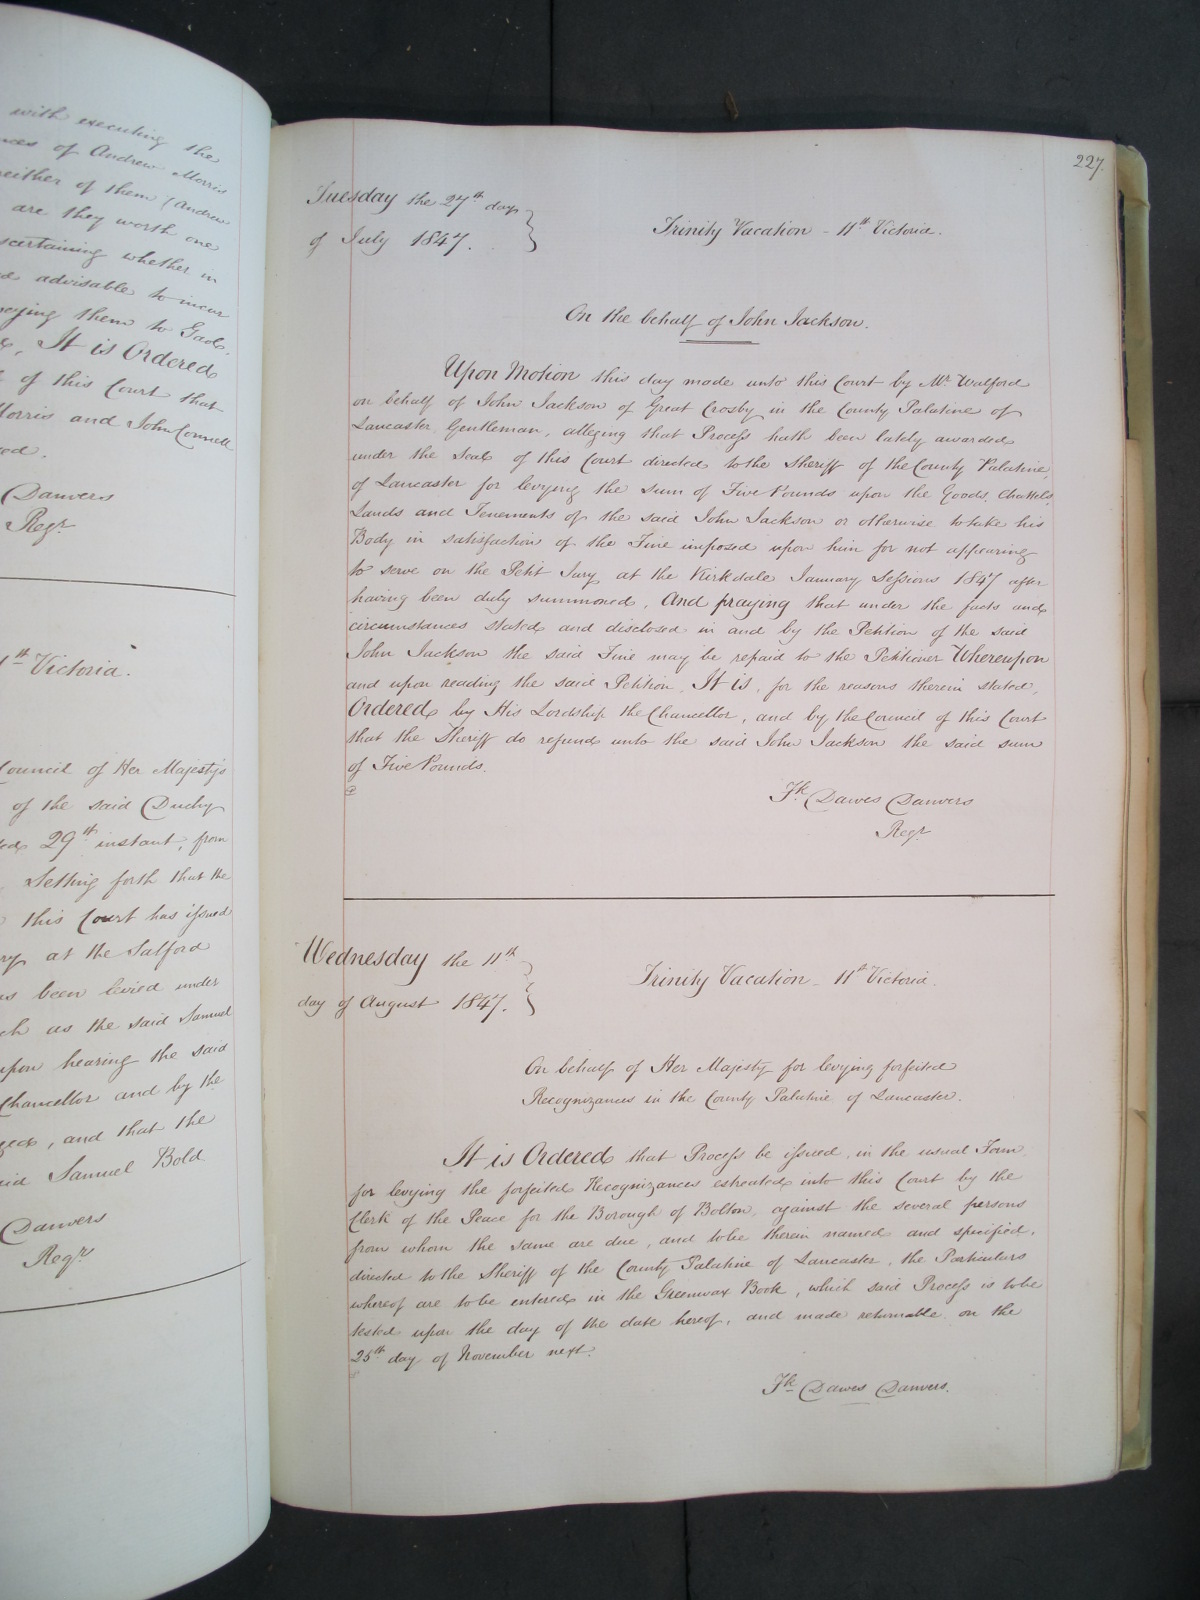 with executing the
of Andrew Morris
neither of them (Andrew
are they worth one
ascertaining whether in
advisable to incur
them to Gaol.
It is Ordered
of this Court that
Morris and John Connell
Danvers
Regr
11th Victoria.
Council of Her Majesty's
of the said Duchy
29th instant, from
setting forth that the
this Court has issued
at the Salford
been levied under
as the said Samuel
upon hearing the said
Chancellor and by the
, and that the
said Samuel Bold.
Danvers
Regr
227.
Tuesday the 27th day
of July 1847.
Trinity Vacation - 11th Victoria.
On the behalf of John Jackson.
Upon Motion this day made unto this Court by Mr. Walford
on behalf of John Jackson of Great Crosby in the County Palatine of
Lancaster Gentleman, alleging that Process hath been lately awarded
under the Seal of this Court directed to the Sheriff of the County Palatine
of Lancaster for levying the sum of Five Pounds upon the Goods, Chattels,
Lands and Tenements of the said John Jackson or otherwise to take his
Body in satisfaction of the Fine imposed upon him for not appearing
to serve on the Petit Jury at the Kirkdale January Sessions 1847 after
having been duly summoned, And praying that under the facts and
circumstances stated and disclosed in and by the Petition of the said
John Jackson the said Fine may be repaid to the Petitioner Whereupon
and upon reading the said Petition, It is, for the reasons therein stated,
Ordered by His Lordship the Chancellor, and by the Council of this Court
that the Sheriff do refund unto the said John Jackson the said sum
of Five Pounds.
Fk Dawes Danvers
Regr
Wednesday the 11th
day of August 1847.
Trinity Vacation - 11th Victoria.
On behalf of Her Majesty for levying forfeited
Recognizances in the County Palatine of Lancaster.
It is Ordered that Process be issued, in the usual Form,
for levying the forfeited Recognizances estreated into this Court by the
Clerk of the Peace for the Borough of Bolton, against the several persons
from whom the same are due, and to be therein named and specified,
directed to the Sheriff of the County Palatine of Lancaster, the Particulars
whereof are to be entered in the Greenwax Book, which said Process is to be
tested upon the day of the date hereof, and made returnable on the
25th day of November next.
Fk Dawes Danvers.